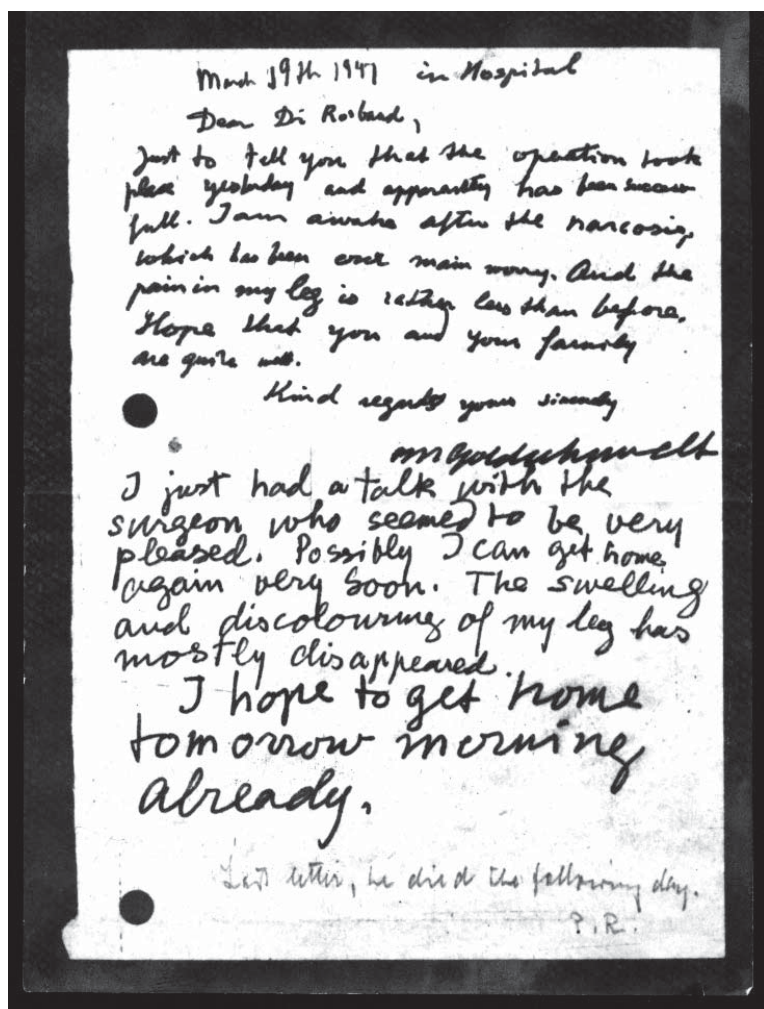 March 19th 1947 in Hospital
Dear Dr Rosbaud,
Just to tell you that the operation took
place yesterday and apparently has been success
full. I am awake after the narcosis,
which has been over main worry. And the
pain in my leg is rather less than before.
Hope that you and your family
are quite well.
Kind regards yours sincerely
VM Goldschmidt
I just had a talk with the
surgeon who seemed to be very
pleased. Possibly I can get home
again very soon. The swelling
and discolouring of my leg has
mostly disappeared.
I hope to get home
tomorrow morning
already.
Last letter, he died the following day.
P.R.